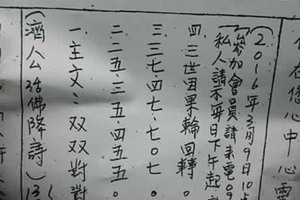 在佛心中心靈
(2016年3月9日10點
參加會員請來電09
私人請示每日下午起
四三世因果輪回轉。
三三七四七、七〇七。
二二五三五四五五。
一.主文:双双對對
(濟公活佛降詩)3